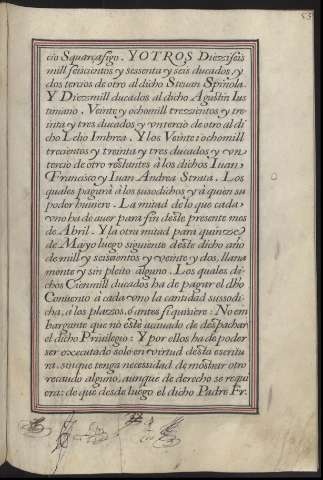 cio Squarçafigo. Y OTROS Diezziseis
mill seiscientos y sessenta y seis ducados, y
dos tercios de otro al dicho Steuan Spinola.
Y Diezmill ducados al dicho Agustin Ius
tiniano. Veinte y ochomill trezzientos y tre
inta y tres ducados y vn tercio de otro al di
cho Lelio Imbrea. Y los Veinte i ochomill
trecientos y treinta y tres ducados y vn
tercio de otro restantes à los dichos Iuan,
Francisco y Iuan Andrea Strata. Los
quales pagarà à los susodichos y à quien su
poder huuiere. La mitad de lo que cada
vno ha de auer para fin deste presente mes
de Abril. Y la otra mitad para quinzze
de Mayo luego siguiente deste dicho año
de mill y seiscientos y veinte y dos, llana
mente y sin pleito alguno. Los quales di
chos Cienmill ducados ha de pagar el dho
Conuento à cada vno la cantidad sussodi
cha, à los plazzos, ò antes si quisiere: No em
bargante que no esté acauado de despachar
el dicho Priuilegio: Y por ellos ha de poder
ser executado solo en virtud desta escritu
ra, sin que tenga necesidad de mostrar otro
recaudo alguno, aunque de derecho se requi
era: de que desde luego el dicho Padre Fr.